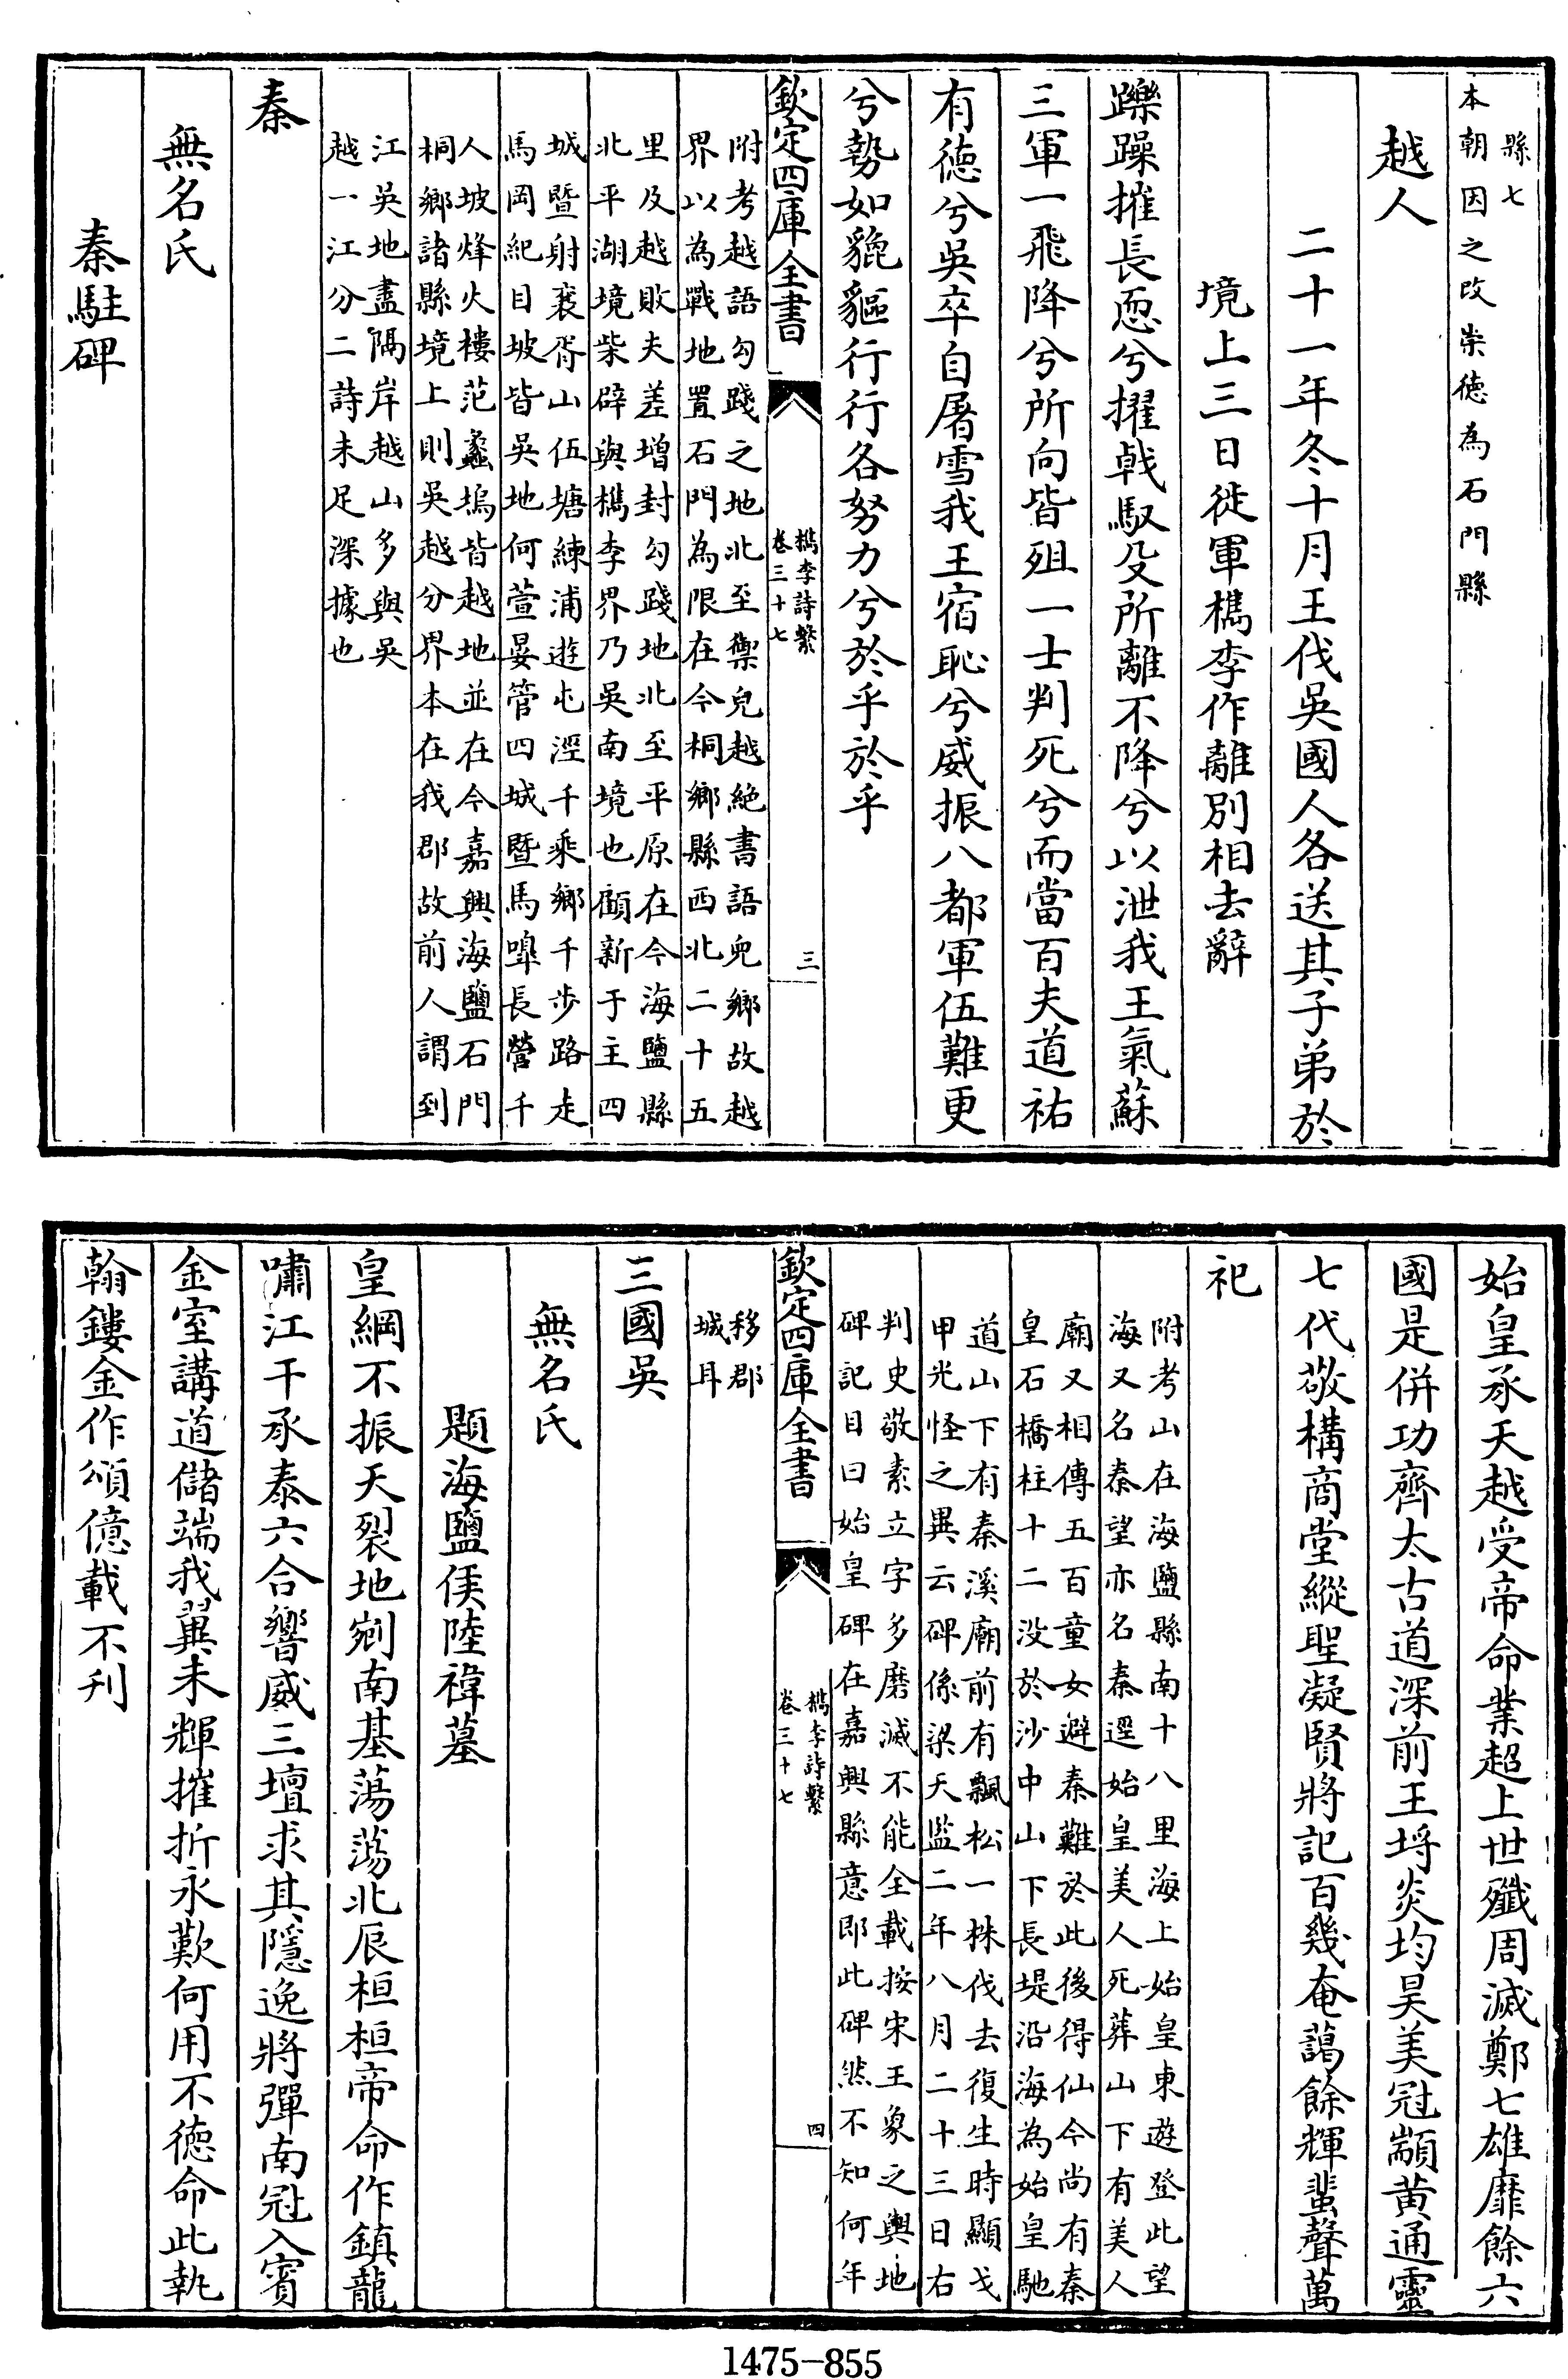 縣七
本朝因之改崇德為石門縣
越人
二十一年冬十月王伐吳國人各送其子弟於
境上三日徙軍檇李作離別相去辭
躒躁摧長恧兮擢㦸馭殳所離不降兮以泄我王氣蘇
三軍一飛降兮所向皆殂一士判死兮而當百夫道祐
有德兮吳卒自屠雪我王宿恥兮威振八都軍伍難更
兮勢如貔貙行行各努力兮於乎於乎
欽定四庫全書
檇李詩繫
卷三十七
三
附考越語勾踐之地北至禦兒越絕書語兒鄉故越
界以為戰地置石門為限在今桐鄉縣西北二十五
里及越敗夫差增封勾踐地北至平原在今海鹽縣
北平湖境柴辟與檇李界乃吳南境也顧新于主四
城暨射襄胥山伍塘練浦遊屯涇千乘鄉千步路走
馬岡紀目坡皆吳地何萱晏管四城暨馬嘷長營千
人坡烽火樓范蠡塢皆越地並在今嘉興海鹽石門
桐鄉諸縣境上則吳越分界本在我郡故前人謂到
江吳地盡隔岸越山多與吳
越一江分二詩未足深據也
秦
無名氏
秦駐碑
始皇承天越受帝命業超上世殲周滅鄭七雄靡餘六
國是併功齊太古道深前王埒炎均昊美冠顓黃通靈
七代敬構商堂縱聖凝賢將記百幾奄藹餘輝蜚聲萬
祀
附考山在海鹽縣南十八里海上始皇東遊登此望
海又名秦望亦名秦逕始皇美人死葬山下有美人
廟又相傳五百童女避秦難於此後得仙今尚有秦
皇石橋柱十二沒於沙中山下長堤沿海為始皇馳
道山下有秦溪廟前有飄松一株伐去復生時顯戈
甲光怪之異云碑係梁天監二年八月二十三日右
判史敬素立字多磨滅不能全載按宋王象之輿地
碑記目曰始皇碑在嘉興縣意即此碑然不知何年
欽定四庫全書
檇李詩繫
卷三十七
四
移郡
城耳
三國吳
無名氏
題海鹽侯陸禕墓
皇綱不振天裂地剜南基蕩蕩北辰桓桓帝命作鎮龍
嘯江干承泰六合響威三壇求其隱逸將彈南冠入賓
金室講道儲端我翼未輝摧折永歎何用不德命此執
翰鏤金作頌億載不刋
1475-855